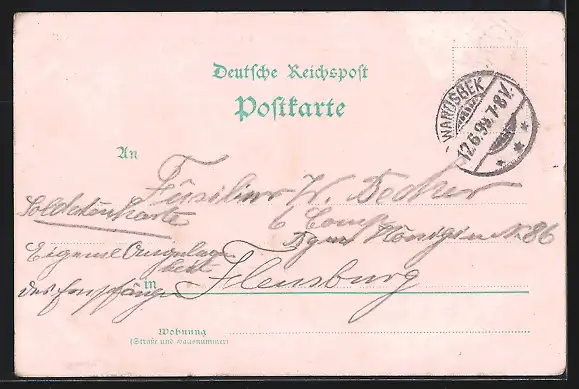 Deutsche Reichspost
Postkarte
WANDSBEK
12.6.99.7-8V.
An
Füsilier W. Decker
Soldatenkarte
6 Comp.
Rgm Königin No 86
Eigene Angelegen
heit
des Empfängers
in Flensburg
Wohnung
(Straße und Hausnummer)